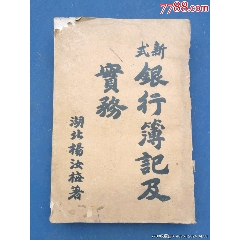 7788.com
新式
銀行簿記及
實務
湖北楊汝梅著